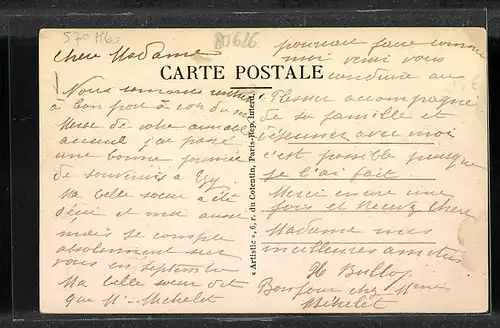 570 Hb
80626
Chère Madame
CARTE POSTALE
Nous sommes
à bon port
Merci de votre aimable
accueil j'ai passé
une bonne journée
de souvenir à
Ma belle sœur a été
et moi aussi
mais je compte
absolument sur
vous en septembre
Ma belle sœur dit
que M. Michelet
« Artistic », 6, r. du Cotentin, Paris-Rep. Interd.
pourrait faire comme
moi venir vous
conduire au
Plessis accompagné
de sa famille et
déjeuner avec moi
c'est possible puisque
je l'ai fait
Merci encore une
fois et recevez chère
Madame mes
meilleures amitiés
H Bullot
Bonjour chez Mme
Michelet